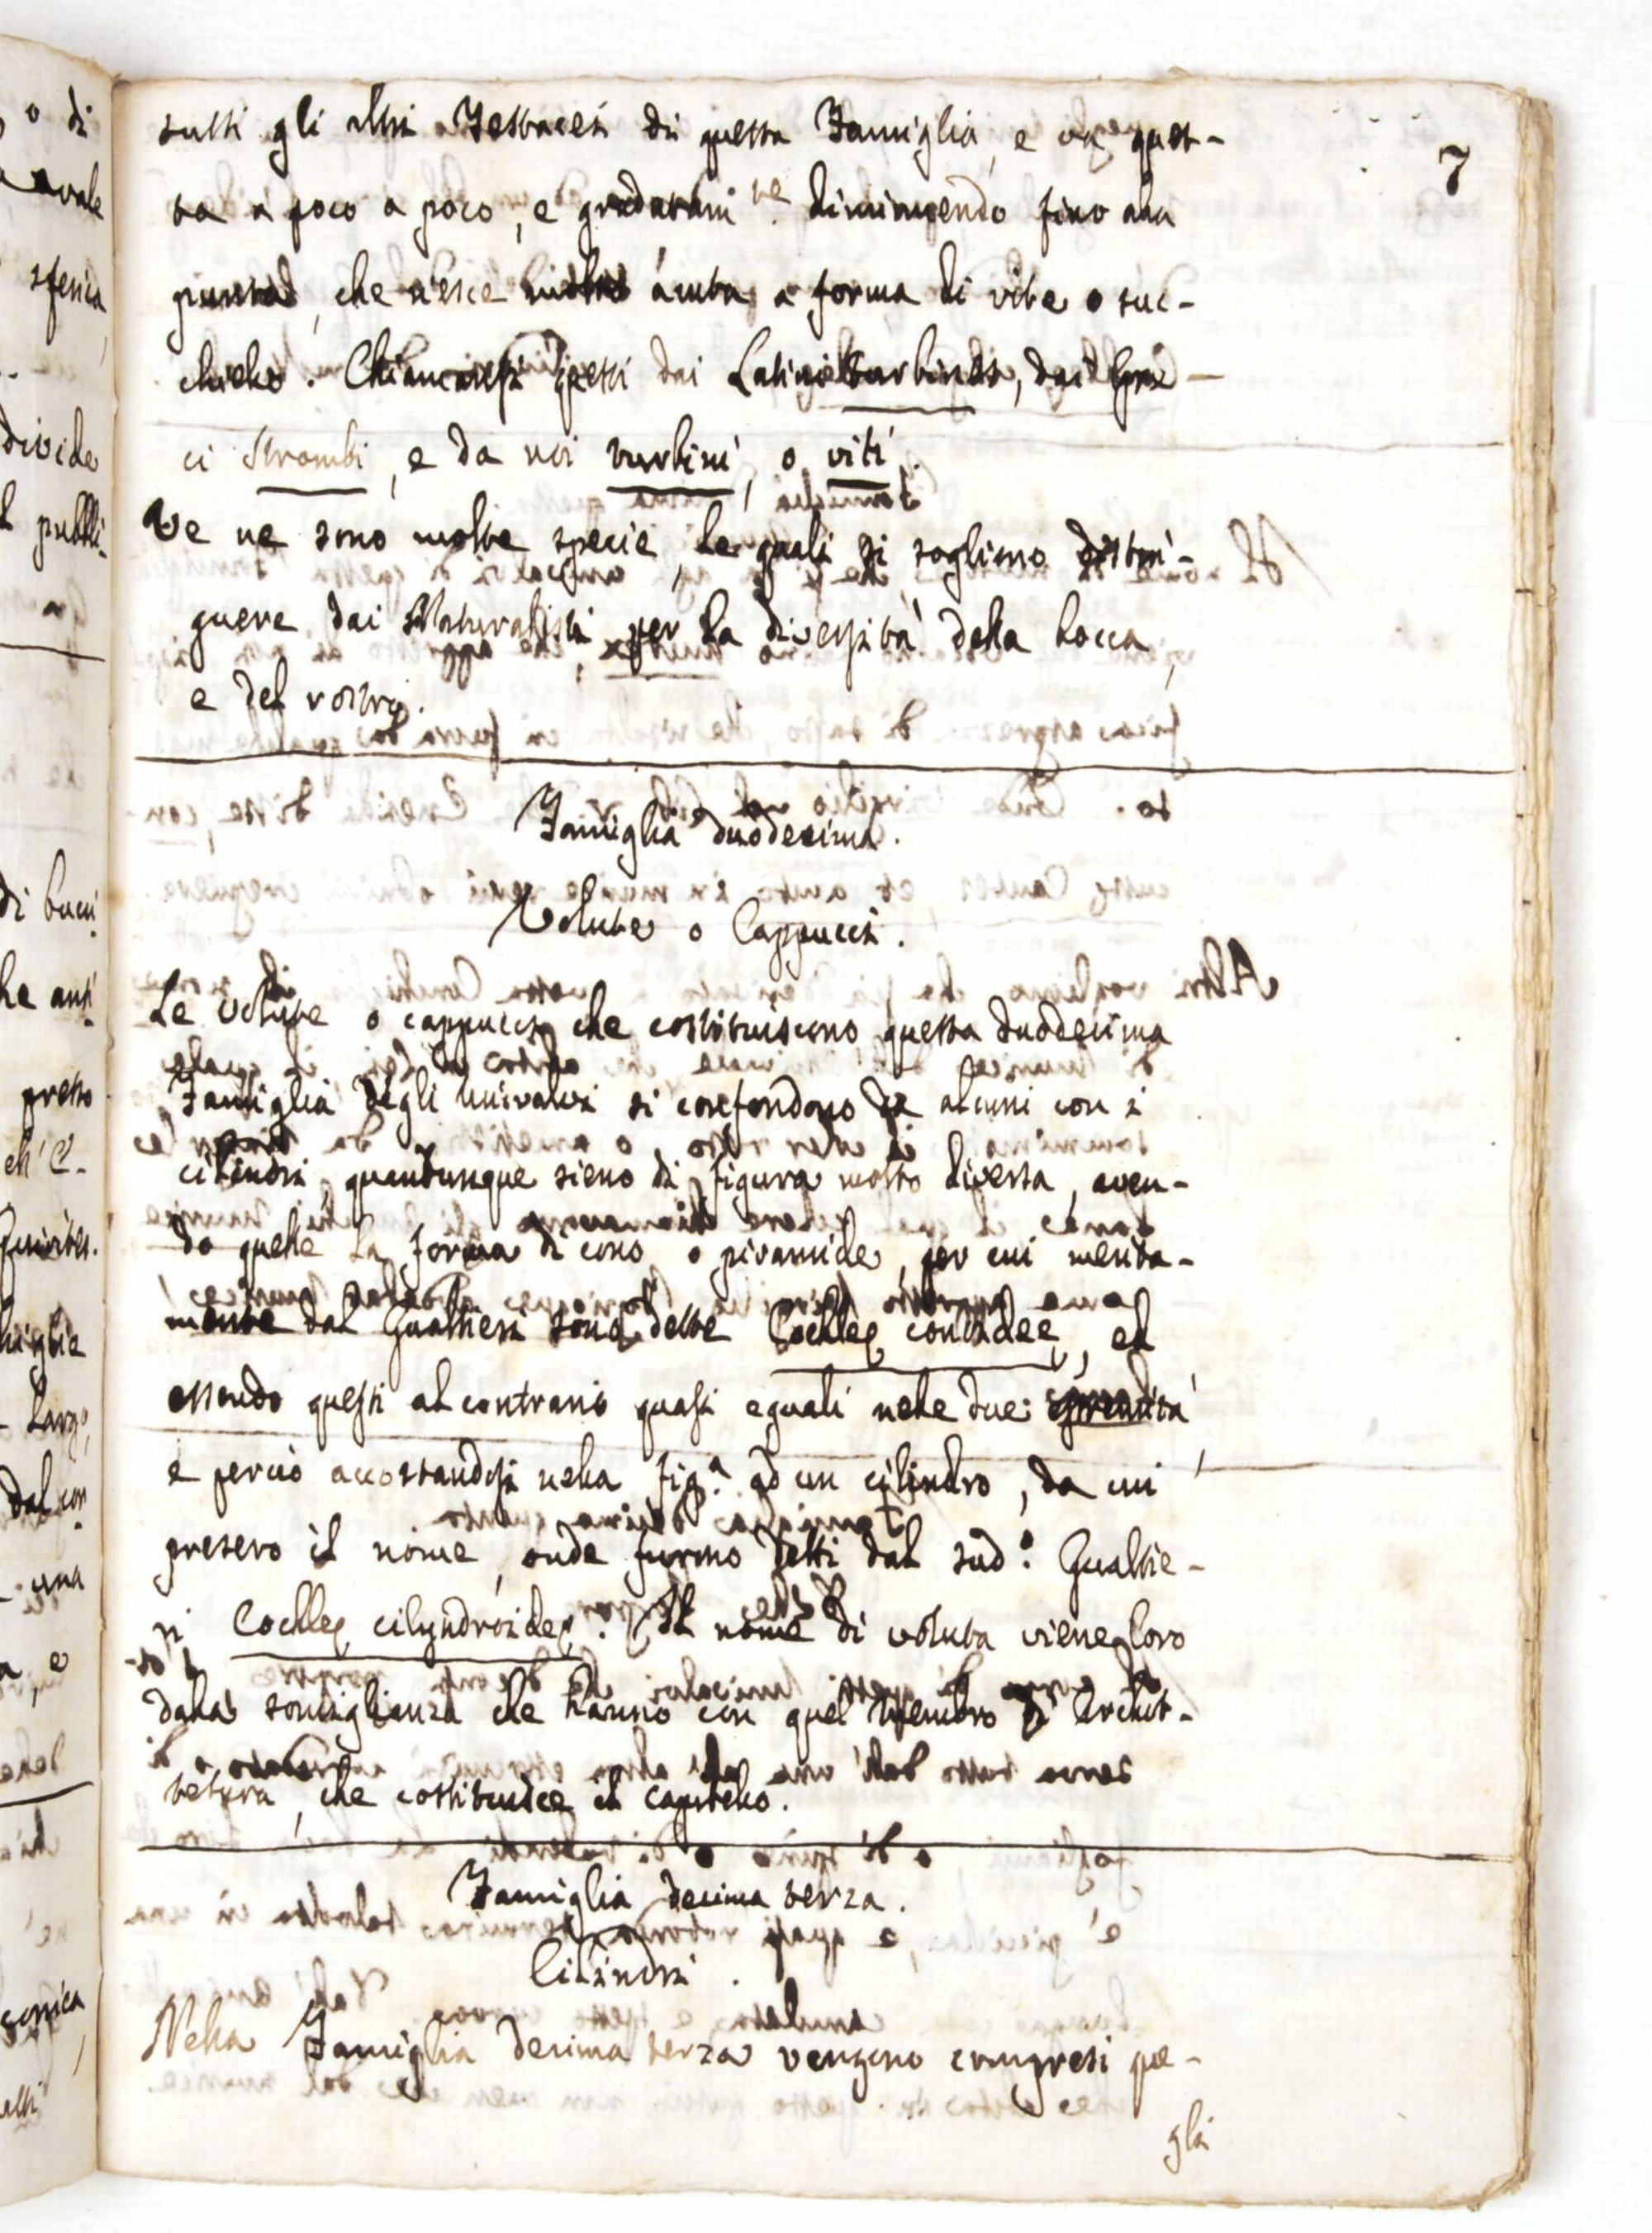 7
tutti gli altri Testacei di questa Famiglia, e va quest-
ta a poco a poco, e gradatam.te diminuendo fino alla
punta, che riesce molto acuta, a forma di vite o suc-
chiello. Chiamansi questi dai Latini turbines, dai Gre-
ci Strombi, e da noi turbini, o viti.
Ve ne sono molte specie, le quali si sogliono distin-
guere dai Naturalisti, per la diversità della bocca,
e del rostro.
Famiglia duodecima.
Volute o Cappucci.
Le volute o cappucci, che costituiscono questa duodecima
Famiglia degli Univalvi si confondono da alcuni con i
cilindri, quantunque sieno di figura molto diversa, aven-
do quelle la forma di cono o piramide, per cui merita-
mente dal Gualtieri sono dette Cochleę conoidee, ed
essendo questi al contrario quasi eguali nelle due estremità
e perciò accostandosi nella fig.a ad un cilindro, da cui
presero il nome, onde furono detti dal sud.o Gualtie-
ri Cochleę cilyndroideę. Il nome di voluta viene loro
dalla somiglianza che hanno con quel membro di Archit-
tetura, che costituisce il capitello.
Famiglia decima terza.
Cilindri.
Nella Famiglia decima terza vengono compresi que-
gli